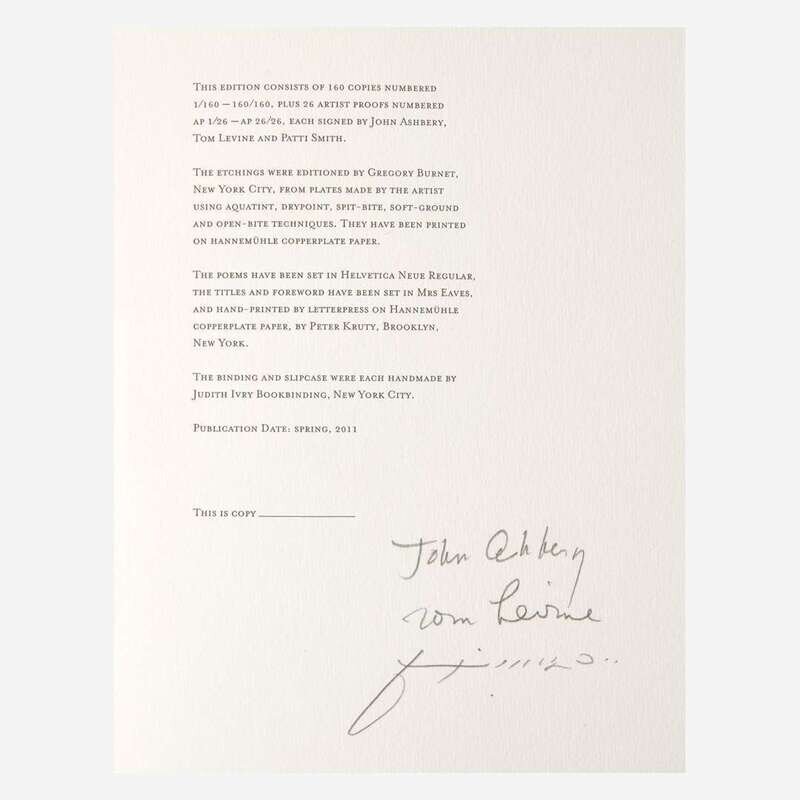 THIS EDITION CONSISTS OF 160 COPIES NUMBERED
1/160 – 160/160, PLUS 26 ARTIST PROOFS NUMBERED
AP 1/26 – AP 26/26, EACH SIGNED BY JOHN ASHBERY,
TOM LEVINE AND PATTI SMITH.
THE ETCHINGS WERE EDITIONED BY GREGORY BURNET,
NEW YORK CITY, FROM PLATES MADE BY THE ARTIST
USING AQUATINT, DRYPOINT, SPIT-BITE, SOFT-GROUND
AND OPEN-BITE TECHNIQUES. THEY HAVE BEEN PRINTED
ON HANNEMÜHLE COPPERPLATE PAPER.
THE POEMS HAVE BEEN SET IN HELVETICA NEUE REGULAR,
THE TITLES AND FOREWORD HAVE BEEN SET IN MRS EAVES,
AND HAND-PRINTED BY LETTERPRESS ON HANNEMÜHLE
COPPERPLATE PAPER, BY PETER KRUTY, BROOKLYN,
NEW YORK.
THE BINDING AND SLIPCASE WERE EACH HANDMADE BY
JUDITH IVRY BOOKBINDING, NEW YORK CITY.
PUBLICATION DATE: SPRING, 2011
THIS IS COPY
John Ashbery
Tom Levine